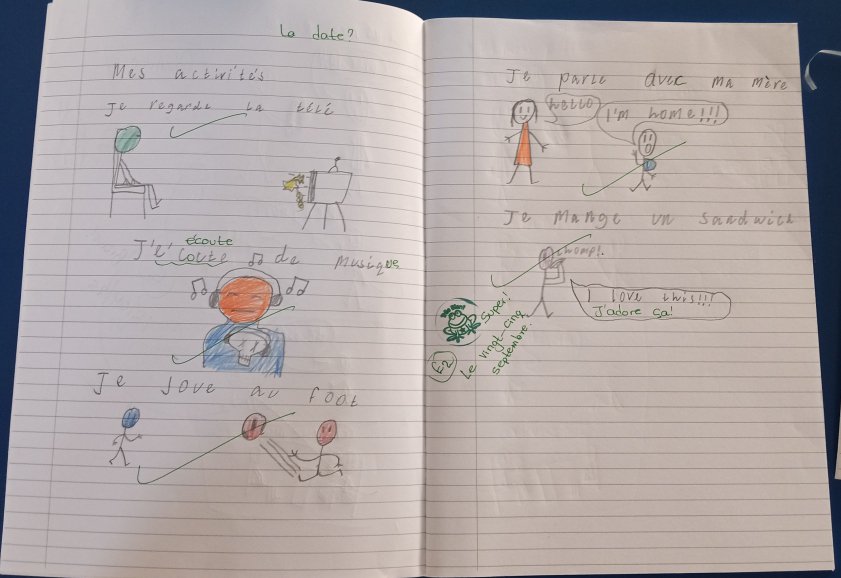 La date?
Mes activités
Je regarde la télé
écoute
J'e'coute de musique
Je Joue au foot
Je parle avec ma mère
hello
I'm home!!!
Je mange un sandwich
chomp!
I love this!!!
J'adore ça!
Super!
E2
Le vingt-cinq
septembre.